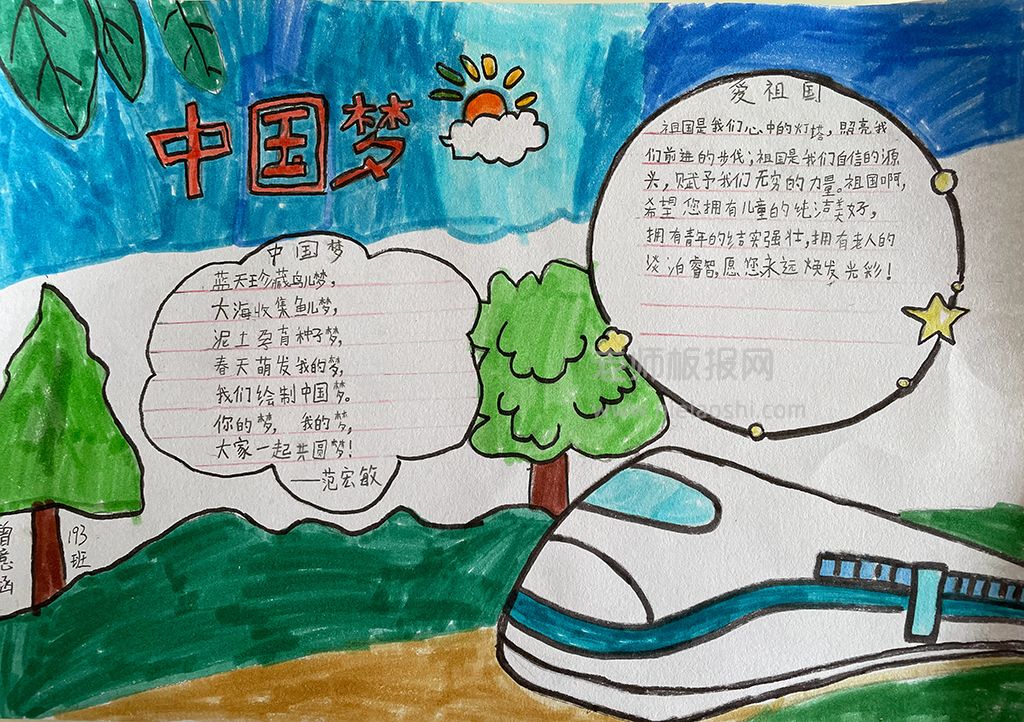 中国梦
爱祖国
祖国是我们心中的灯塔，照亮我
们前进的步伐；祖国是我们自信的源
头，赋予我们无穷的力量。祖国啊，
希望您拥有儿童的纯洁美好，
拥有青年的结实强壮，拥有老人的
淡泊睿智，愿您永远焕发光彩！
中国梦
蓝天珍藏鸟儿梦，
大海收集鱼儿梦，
泥土孕育种子梦，
春天萌发我的梦，
我们绘制中国梦。
你的梦，我的梦，
大家一起共圆梦！
——范宏敏
193
班
老师板报网